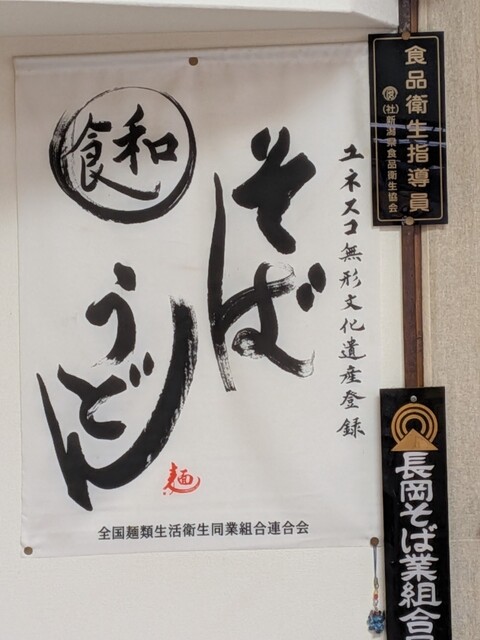 ユネスコ無形文化遺産登録
そば
和食
うどん
麺
全国麺類生活衛生同業組合連合会
食品衛生指導員
(社)新潟県食品衛生協会
長岡そば業組合